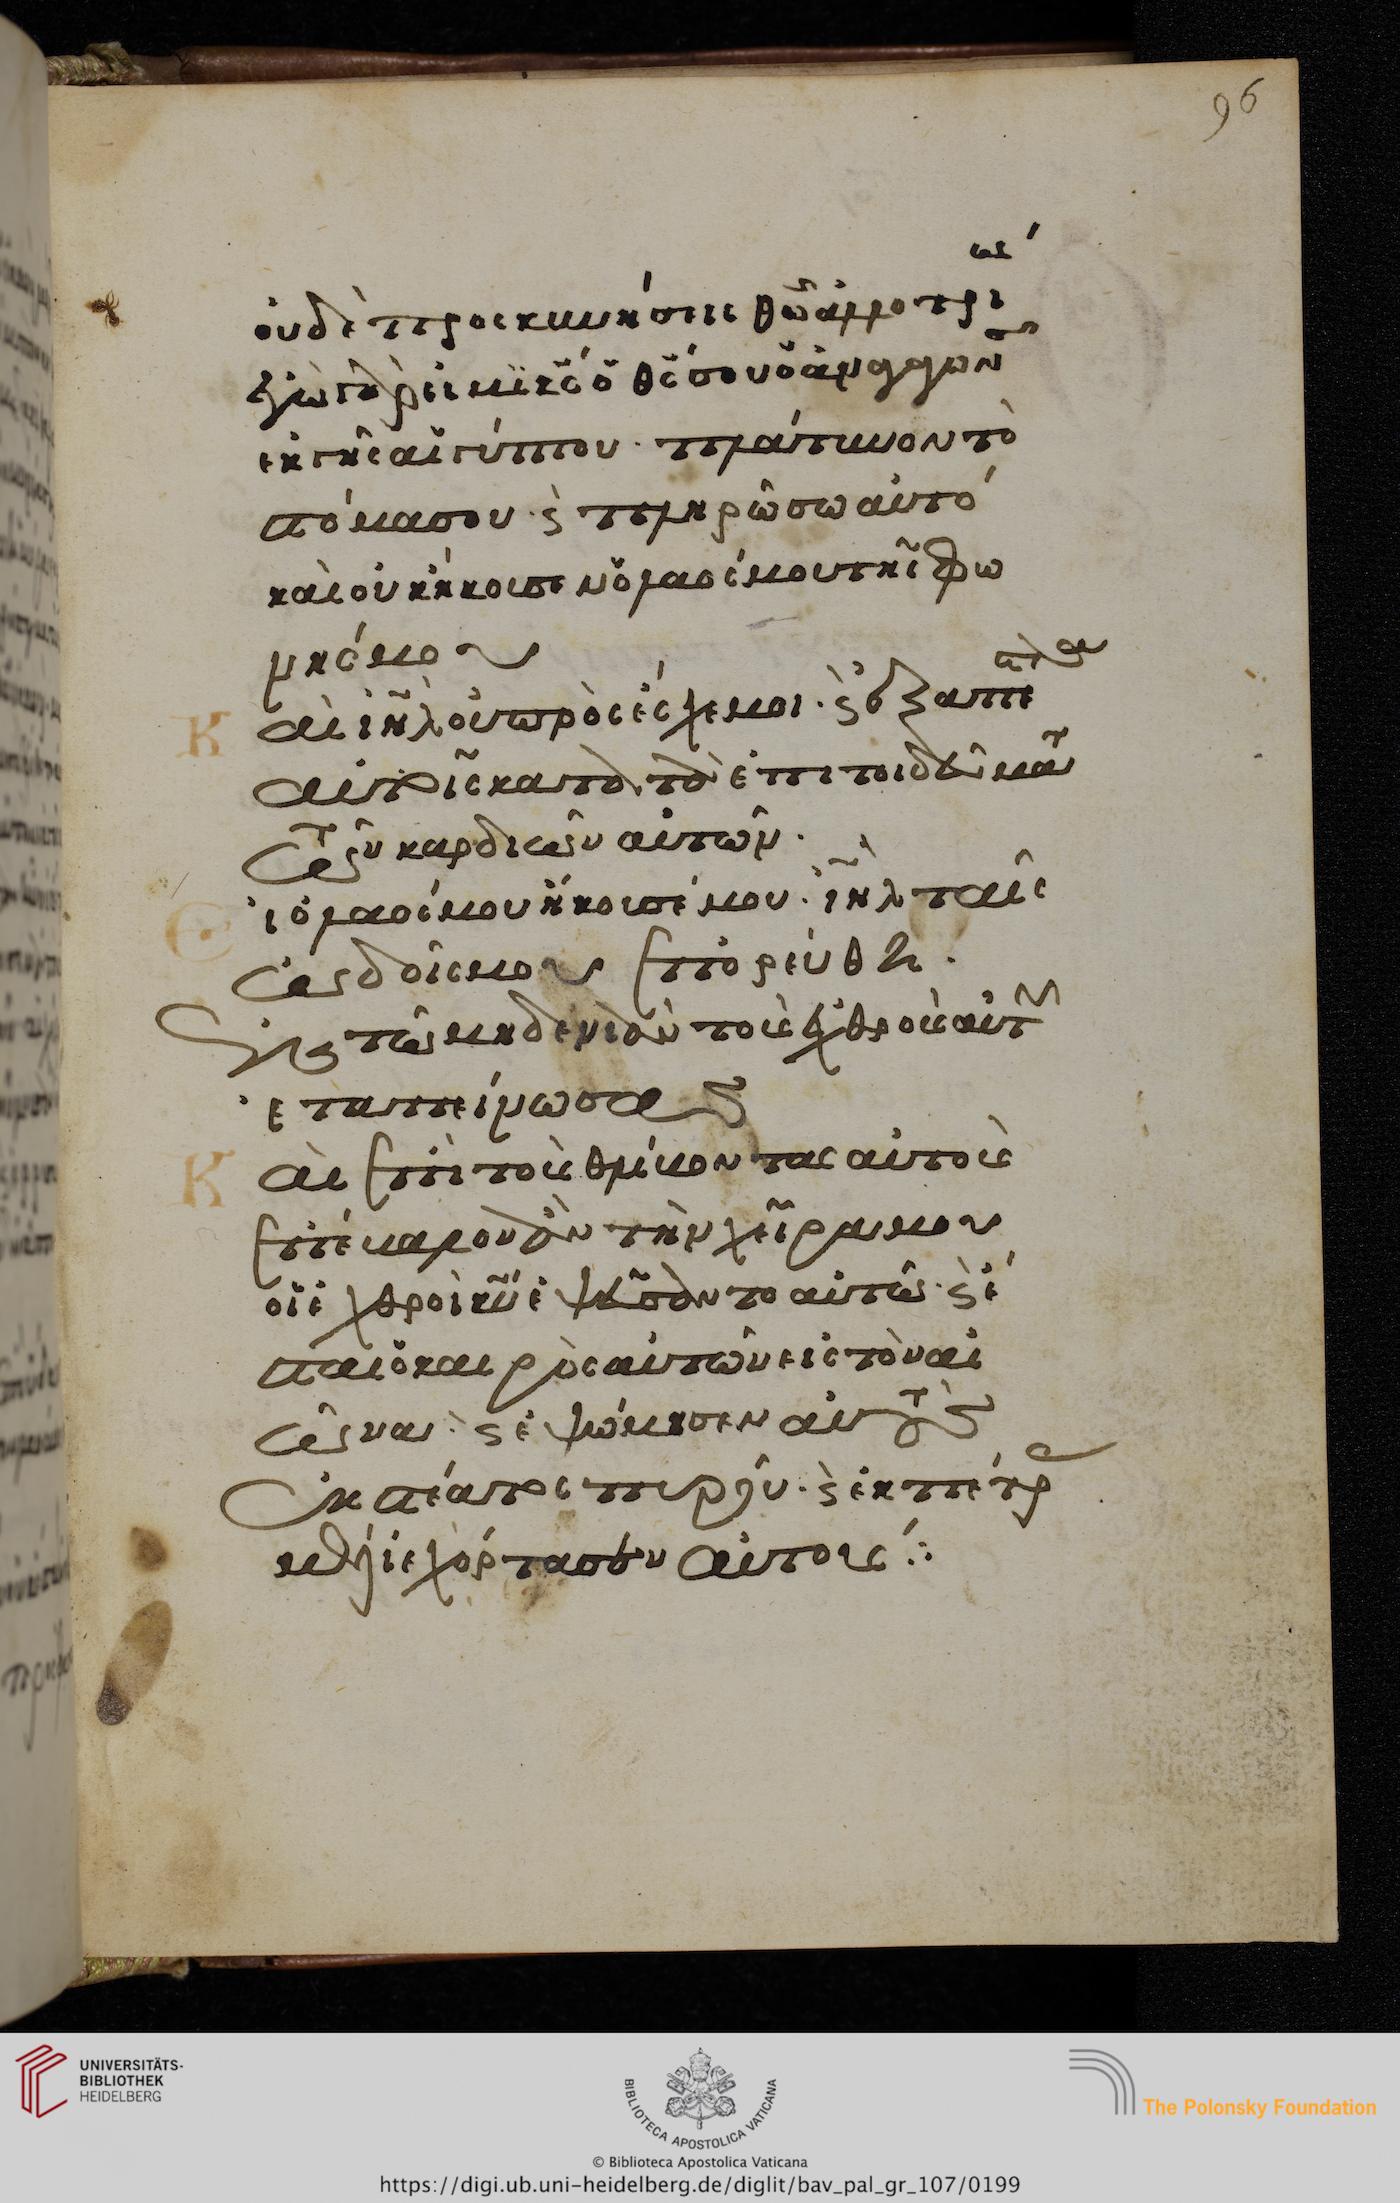 96
οὐδὲ προσκυνήσεις θῶ ἀλλοτρίω
ἐγὼ γάρ εἰμι κς ὁ θς σου ὁ ἀναγαγών σε
ἐκ γῆς αἰγύπτου· πλάτυνον τὸ
στόμα σου· ϛ πληρώσω αὐτό
καὶ οὐκ ἤκουσεν ὁ λαός μου τῆς φω
νῆς μου
Καὶ ιηλ οὐ προσέσχε μοι· ϛ ἐξαπέστειλα
αὐτοὺς κατὰ τὰ ἐπιτηδεύματα
τῶν καρδιῶν αὐτῶν.
Εἰ ὁ λαός μου ἤκουσέ μου· ιηλ ταῖς
ὁδοῖς μου ἐπορεύθη.
Ἐν τῶ μηδενὶ ἂν τοὺς ἐχθροὺς αὐτῶν
ἐταπείνωσα
Καὶ ἐπὶ τοὺς θλίβοντας αὐτοὺς
ἐπέβαλον ἂν τὴν χεῖρα μου
οἱ ἐχθροὶ κυ ἐψεύσαντο αὐτῶ· ϛ ἔ
σται ὁ καιρὸς αὐτῶν εἰς τὸν αἰ
ῶνα· ϛ ἐψώμισεν αὐτοὺς
ἐκ στέατος πυροῦ· ϛ ἐκ πέτρας
μέλι ἐχόρτασεν αὐτούς
UNIVERSITÄTS-
BIBLIOTHEK
HEIDELBERG
BIBLIOTECA APOSTOLICA VATICANA
The Polonsky Foundation
© Biblioteca Apostolica Vaticana
https://digi.ub.uni-heidelberg.de/diglit/bav_pal_gr_107/0199